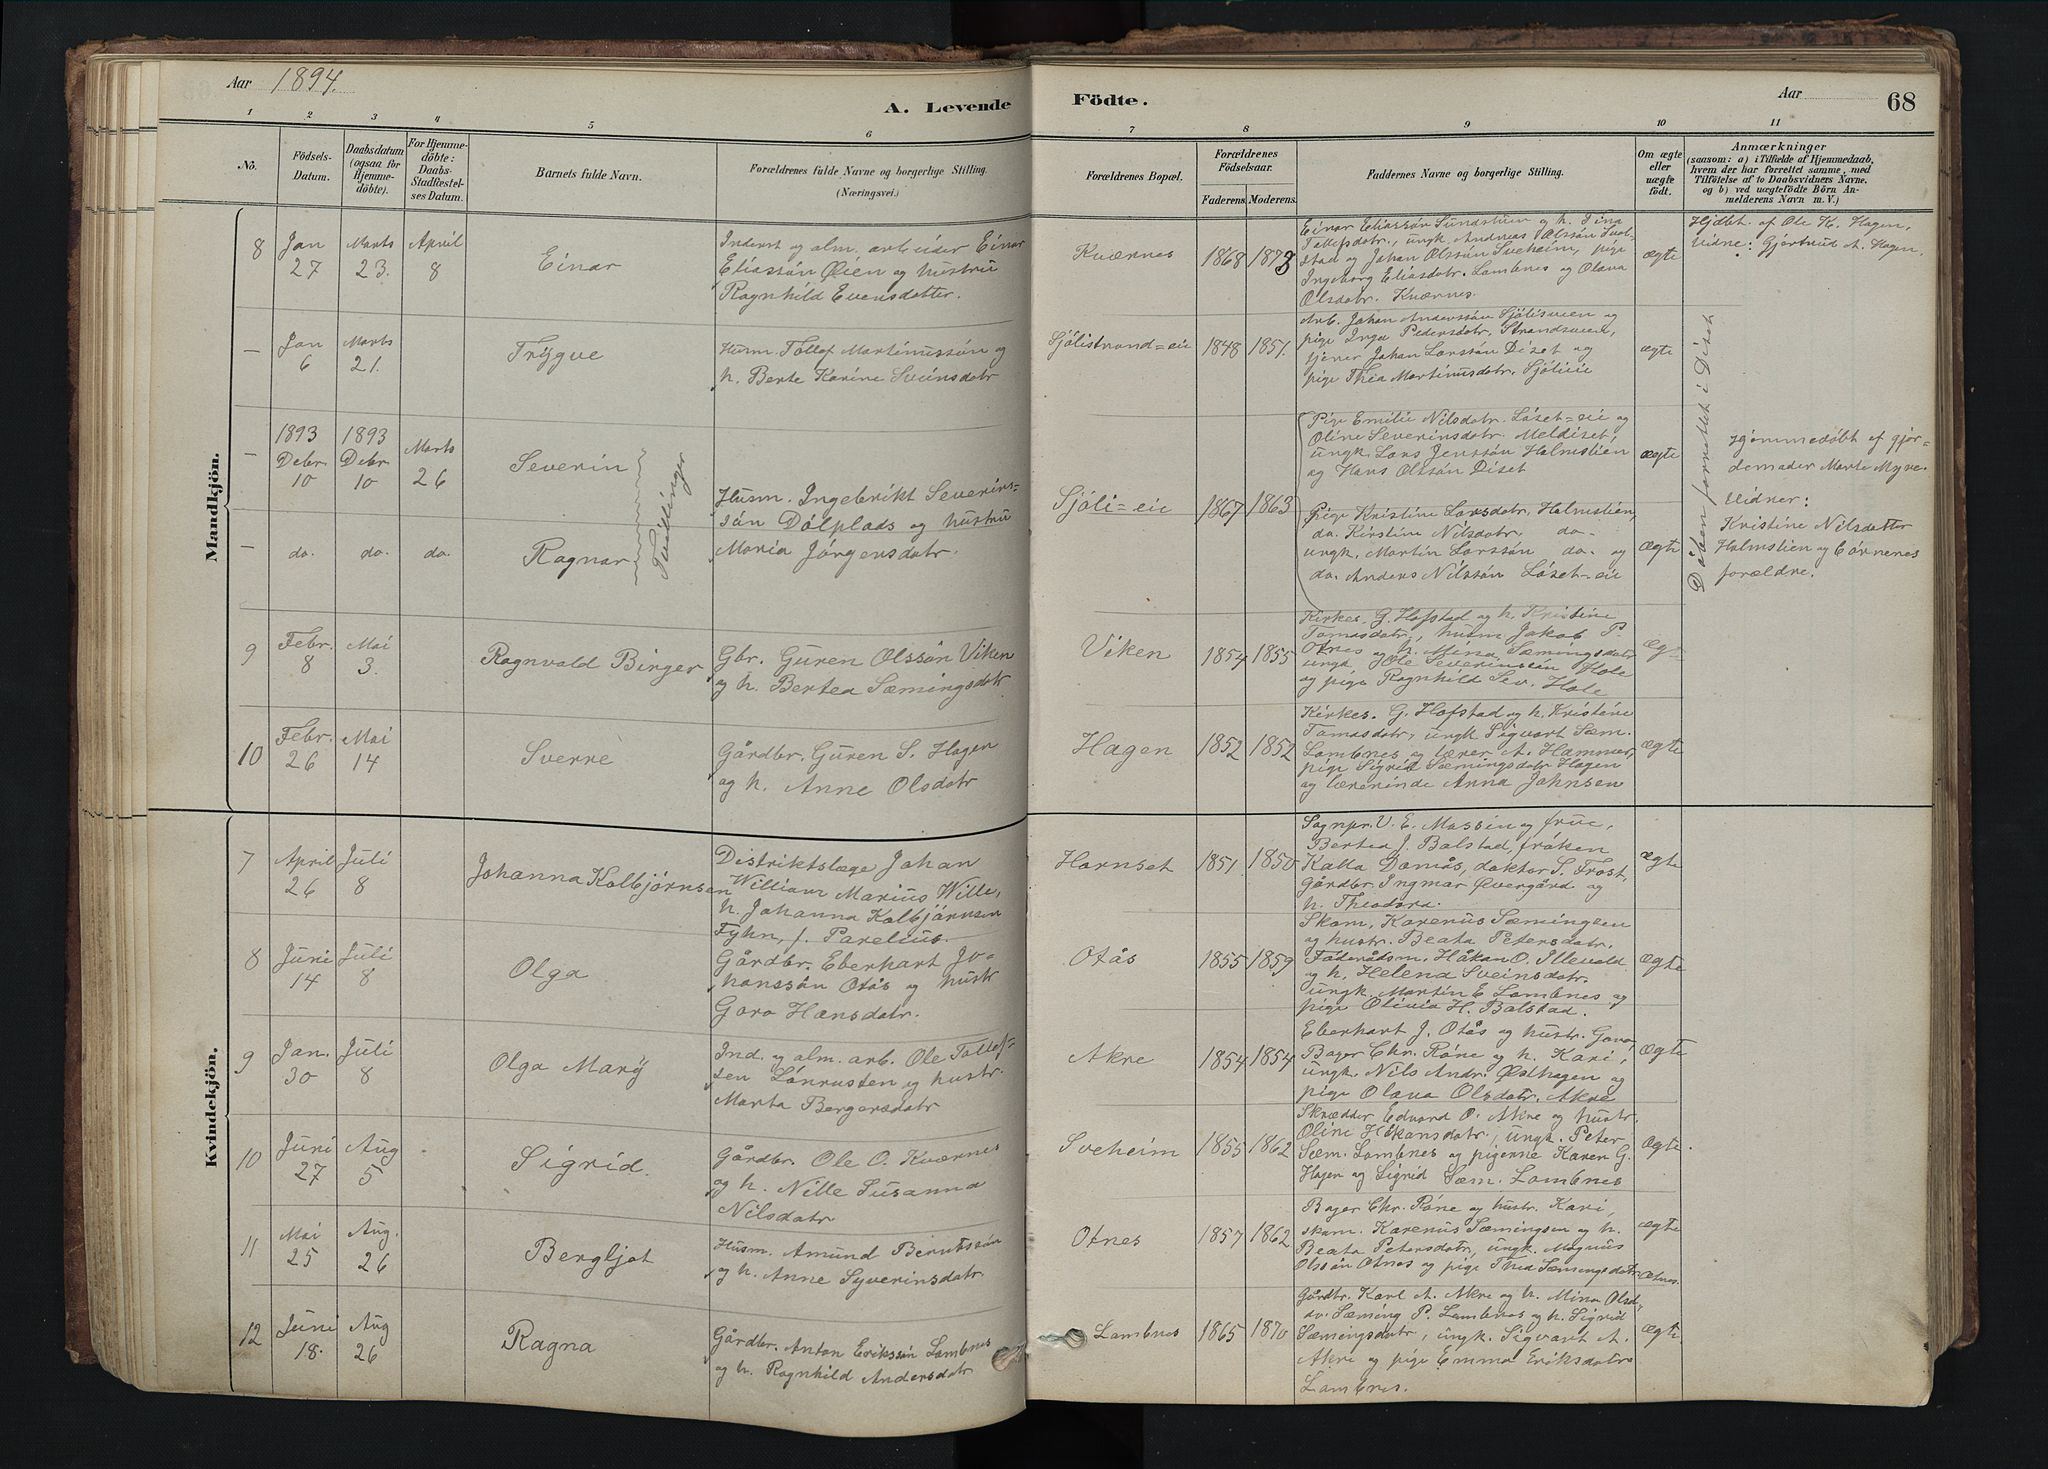 Aar 1894.
A. Levende Födte.
Aar
68
1 2 3 4 5 6 7 8 9 10 11
No.
Födsels-
Datum.
Daabsdatum
(ogsaa for
Hjemme-
döbte).
For Hjemme-
döbte:
Daabs-
Stadfæstel-
ses Datum.
Barnets fulde Navn.
Forældrenes fulde Navne og borgerlige Stilling.
(Næringsvei.)
Forældrenes Bopæl.
Forældrenes
Födselsaar.
Faderens. Moderens.
Faddernes Navne og borgerlige Stilling.
Om ægte
eller
uægte
födt.
Anmærkninger
(saasom: a) i Tilfælde af Hjemmedaab,
hvem der har forrettet samme, med
Tilföielse af to Daabsvidners Navne,
og b) ved uægtefödte Börn An-
melderens Navn m. V.)
Mandkjön.
8
Jan
27
Marts
23.
April
8
Einar
Inderst og alm. arbeider Einar
Eliassön Öien og hustru
Ragnhild Evensdatter.
Kværnes
1868 1873
Einar Eliassön Sundstuen og h. Tina
Tollefsdatr., ungk. Andreas Olssön
stad og Johan Olssön Sveheim, pige
Ingeborg Eliasdatr. Lombnes og Olava
Olsdatr. Kværnes.
ægte
Hjdöbt. af Ole K. Hagen,
Vidne: Gjörtrud A. Hagen.
—
Jan
6
Marts
21.
Trÿgve
Husm. Tollef Martinussön og
h. Berte Karine Svensdatr
Sjölistrand=eie
1848 1851.
Arb. Johan Anderssön Sjölisveen og
pige Inga Pedersdatr. Strandsveen,
tjener Johan Larssön Diset og
pige Thea Martinusdatr. Sjölieie
ægte
Dåben forrettet i Diset
—
1893
Debr.
10
1893
Debr.
10
Marts
26
Severin
Tvillinger
Husm. Ingebrikt Severins-
sön Dölplads og hustru
Maria Jörgensdatr.
Sjöli=eie
1867 1863
Pige Emilie Nilsdatr. Löset=eie og
Oline Severinsdatr. Meldiset,
ungk. Lars Jenssön Holmslien
og Hans Olssön Diset
ægte
Hjemmedöbt af gjor-
demoder Marte Myre.
Vidner:
Kristine Nilsdatter
Holmslien og börnenes
forældre.
—
do. do. do.
Ragnar
Pige Kristine Larsdatr. Holmslien,
do. Kirstine Nilsdatr. do-
ungk. Martin Larssön do- og
do. Anders Nilssön Löset=eie
ægte
9
Febr.
8
Mai
3.
Ragnvald Birger
Gbr. Guren Olssön Viken
og h. Bertea Sæmingsdatr
Viken
1854 1855
Kirkes. G. Hofstad og h. Kristine
Tomasdatr., husm Jakob P.
Otnes og h. Mina Sæmingsdatr
ungk Ole Severinssön Hole
og pige Ragnhild Sev. Hole
æg-
10
Febr.
26
Mai
14
Sverre
Gårdbr. Guren S. Hagen
og h. Anne Olsdatr
Hagen
1852 1852
Kirkes. G. Hofstad og h. Kristine
Tomasdatr, ungk Sigvart Sæm.
Lombnes og lærer A. Hammer,
pige Sigrid Sæmingsdatr Hagen
og lærerinde Anna Johnsen
ægte
Kvindekjön.
7
April
26
Juli
8
Johanna Kolbjörnsen
Distriktslæge Johan
William Marius Wille,
h. Johanna Kolbjörnsen
Fyhn, f. Parelius.
Hornset
1851 1850
Sognpr. V. E. Massin og frue,
Bertea J. Bolstad, fröken
Kalla Domås, doktor S. Frost,
Gårdbr. Ingmar Övergård og
h. Theodora.
ægte
8
Juni
14
Juli
8
Olga
Gårdbr. Eberhart Jo-
hanssön Otås og hustr
Goro Hansdatr.
Otås
1855 1859
Skom, Karenus Sæmingsen
og hustr. Beata Petersdatr.
Föderådsm, Håkan O. Illevold
og h. Helena Sveinsdatr.
ungk. Martin E Lombnes og
pige Olivia H. Bolstad.
ægte
9
Jan.
30
Juli
8
Olga Marÿ
Ind. og alm. arb. Ole Tollef-
sen Lönrusten og hustr.
Marta Bergersdatr
Akre
1854 1854
Eberhart J. Otås og hustr. Goro,
Bager Chr. Röne og h. Kari,
ungk. Nils Andr. Östhagen og
pige Olava Olsdatr. Akre
ægte
10
Juni
27
Aug
5
Sigrid.
Gårdbr. Ole O. Kværnes
og h. Nille Susanna
Nilsdatr
Sveheim
1855 1862
Skrædder Edvard O. Akre og hustr.
Oline Håkansdatr., ungk. Peter
Sæm. Lombnes og pigerne Karen G.
Hagen og Sigrid Sæm. Lombnes
Ægte.
11
Mai
25
Aug.
26
Bergljot
Husm. Amund Berntssön
og h. Anne Syverinsdatr.
Otnes
1857 1862
Bager Chr. Röne og hustr. Kari,
skom. Karenus Sæmingsen og h.
Beata Petersdatr, ungk. Magnus
Olssön Otnes og pige Thea Sæmingsdatr Otnes.
ægte
12
Juni
18.
Aug
26
Ragna
Gårdbr. Anton Erikssön Lombnes
og h. Ragnhild Andersdatr
Lombnes
1865 1870
Gårdbr. Karl A. Akre og h. Mina Olsd,
do. Sæming P. Lombnes og h. Sigrid
Sæmingsdatr, ungk. Sigvart A.
Akre og pige Emma Eriksdatr
Lombnes.
ægte